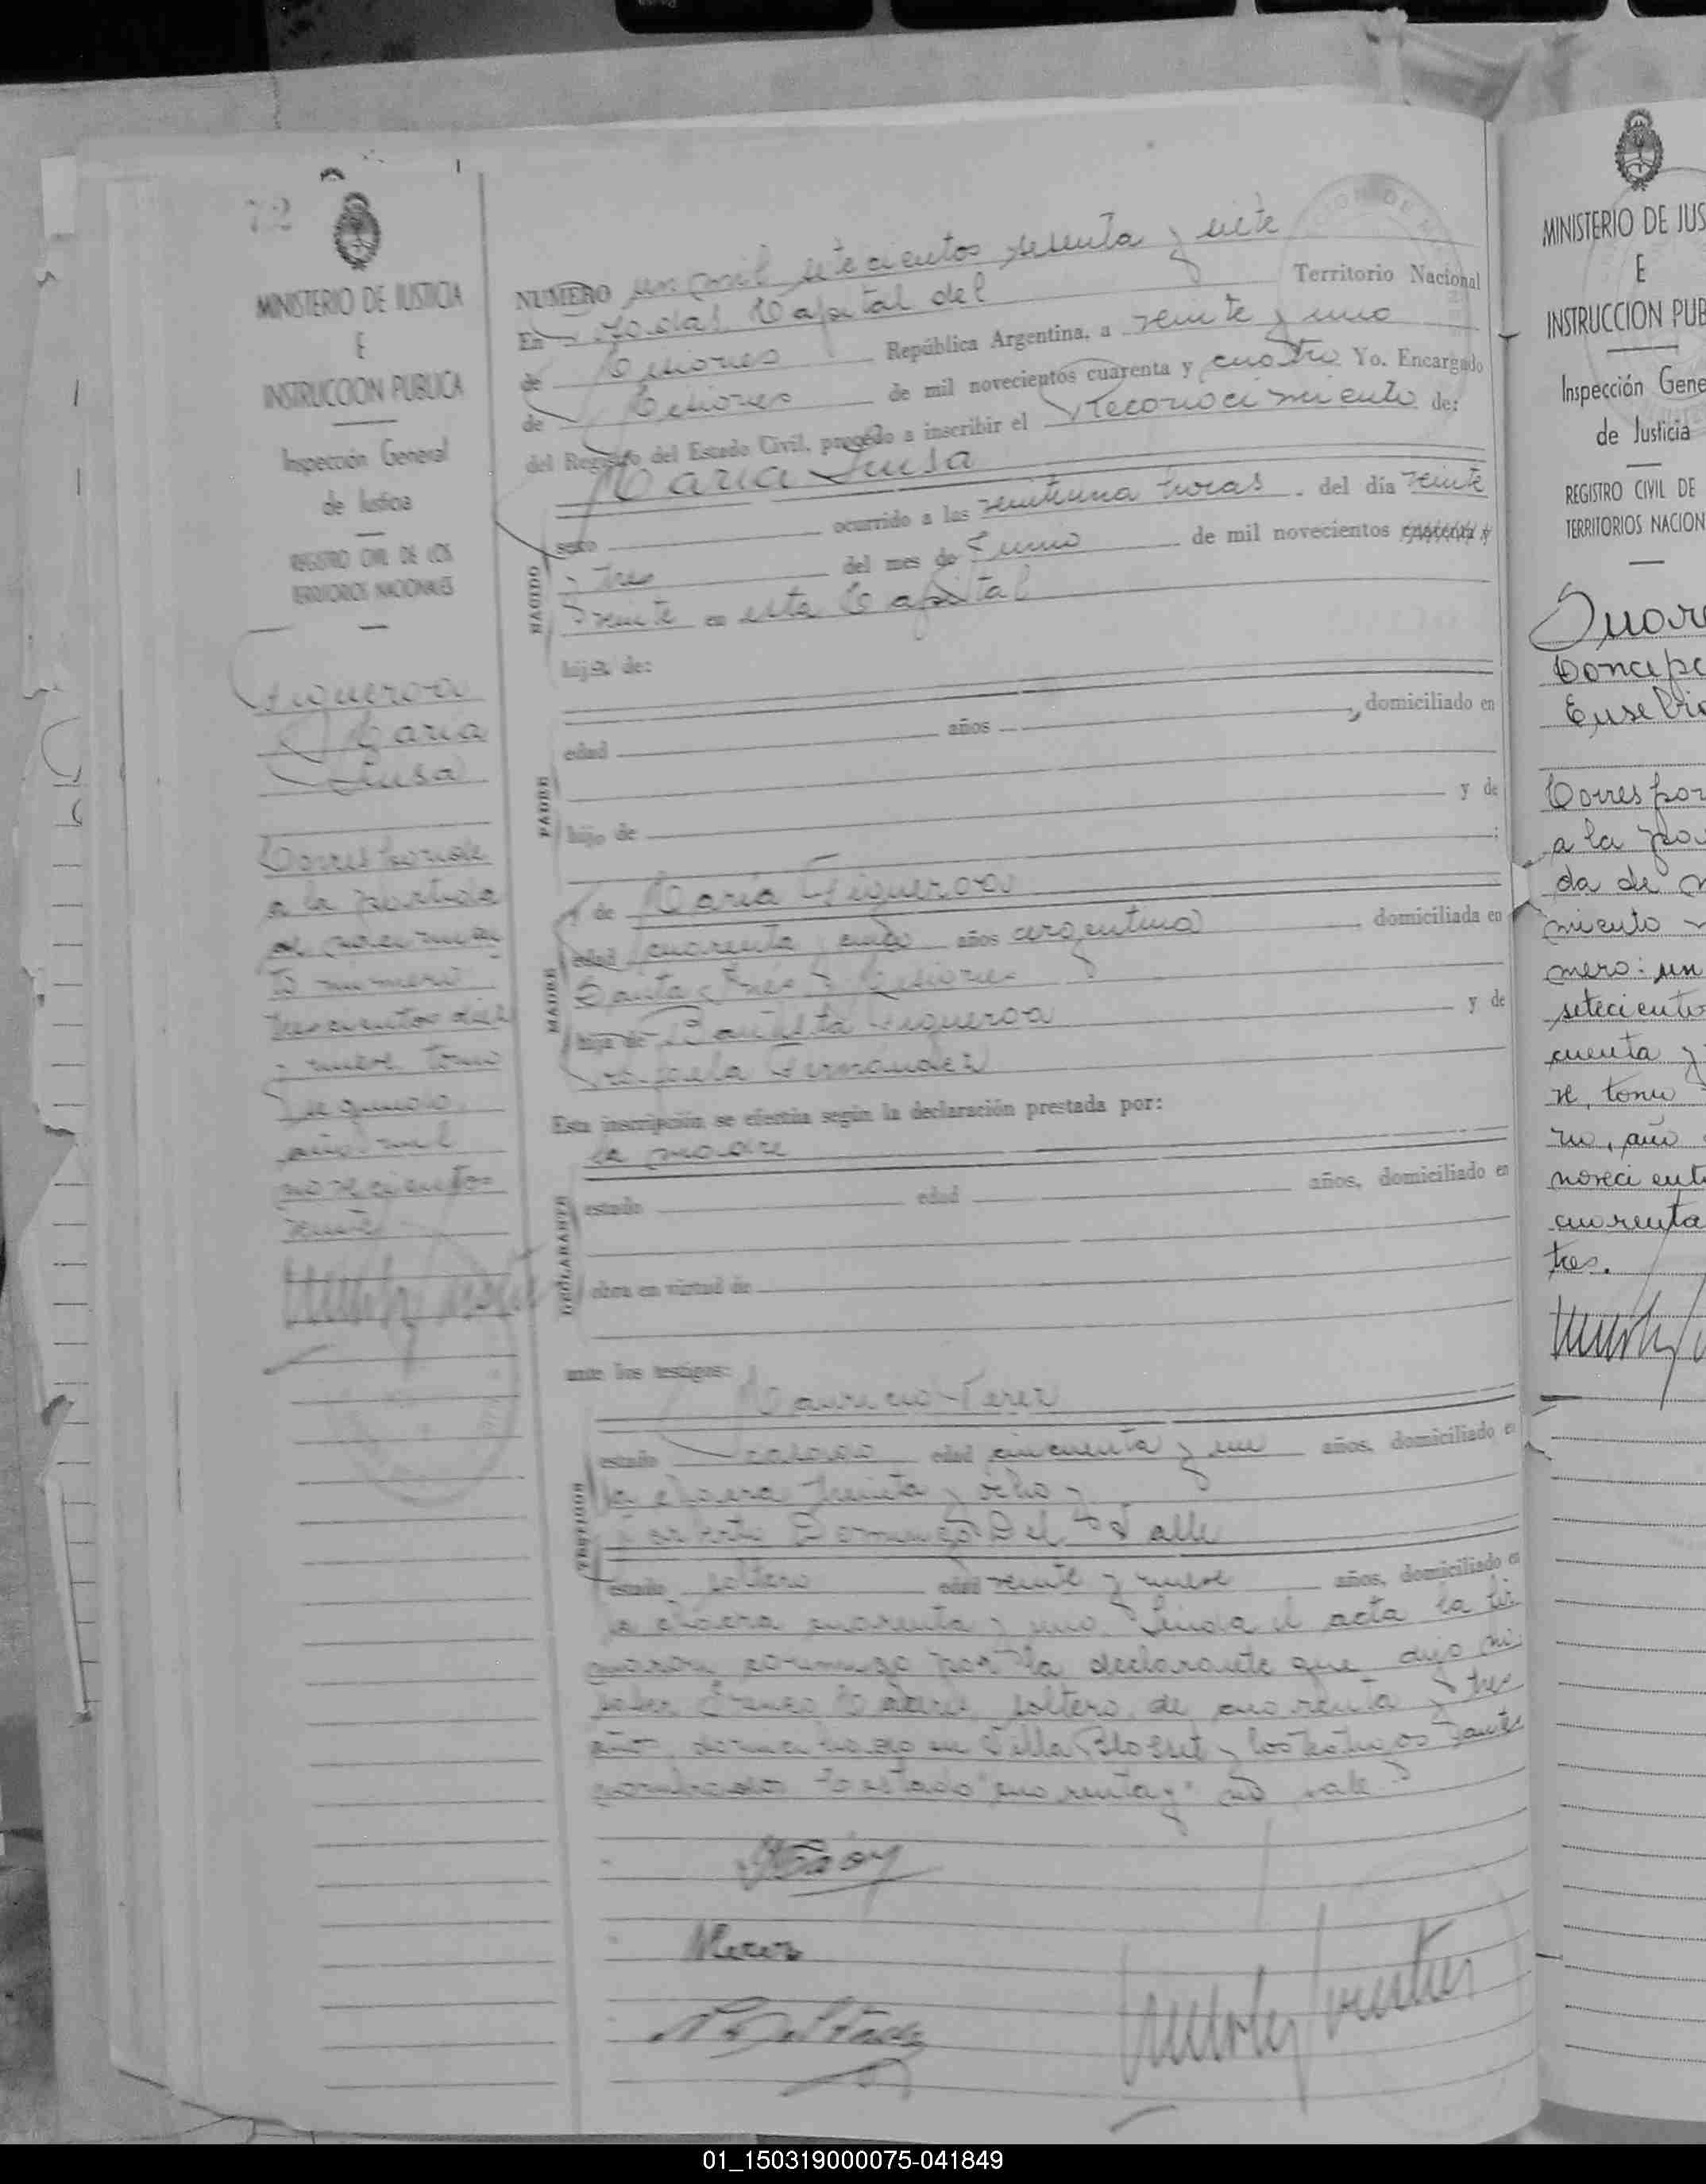 72
MINISTERIO DE JUSTICIA
E
INSTRUCCION PUBLICA
Inspección General
de Justicia
REGISTRO CIVIL DE LOS
TERRITORIOS NACIONALES
Figueroa
María
Luisa
Corresponde
a la partida
de nacimien
to número
trescientos diez
y nueve, tomo
segundo,
año mil
novecientos
veinte
NUMERO un mil setecientos sesenta y siete
En Posadas, Capital del Territorio Nacional
de Misiones República Argentina, a veinte y uno
de de mil novecientos cuarenta y cuatro Yo. Encargado
del Registro del Estado Civil, procedo a inscribir el Reconocimiento de:
María Luisa
NACIDO
sexo ocurrido a las veintiuna horas, del día veinte
y tres del mes de Junio de mil novecientos cuarenta y
veinte en esta Capital
hija de:
PADRE
edad años , domiciliado en
hijo de y de
;
MADRE
y de María Figueroa
edad cuarenta y cinco años argentina, domiciliada en
Santa Inés, Misiones
hija de Bautista Figueroa y de
Rafaela Fernández
Esta inscripción se efectúa según la declaración prestada por:
la madre
DECLARANTE
estado edad años, domiciliado en
obra en virtud de
ante los testigos:
TESTIGOS
Mauricio Perez
estado casado edad cincuenta y un años, domiciliado en
la chacra treinta y ocho y
Domingo Del Valle
estado soltero edad veinte y nueve años, domiciliado en
la chacra cuarenta y uno. Leida el acta la fir
maron conmigo por la declarante que dijo no
saber soltero, de cuarenta y tres
años, domiciliado en Villa Blosset y los testigos antes
nombrados. Testado "cuarenta y" no vale
MINISTERIO DE JUS
E
INSTRUCCION PUB
Inspección Gene
de Justicia
REGISTRO CIVIL DE
TERRITORIOS NACION
Concepc
Eusebio
Correspon
a la par
da de n
miento n
mero: un
setecient
cuenta y
ve, tomo
ro, año
novecient
cuarenta
tres.
01_150319000075-041849